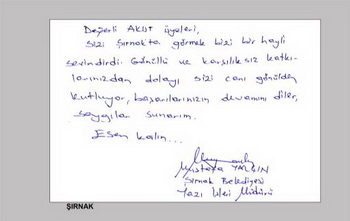 Değerli Akist Üyeleri,
Sizi Şırnak'ta görmek bizi bir hayli
sevindirdi. Gönüllü ve karşılıksız katkı-
larınızdan dolayı sizi canı gönülden
kutluyor, başarılarınızın devamını diler,
saygılar sunarım.
Esen kalın...
Mustafa YALÇIN
Şırnak Belediyesi
Yazı İşleri Müdürü
ŞIRNAK